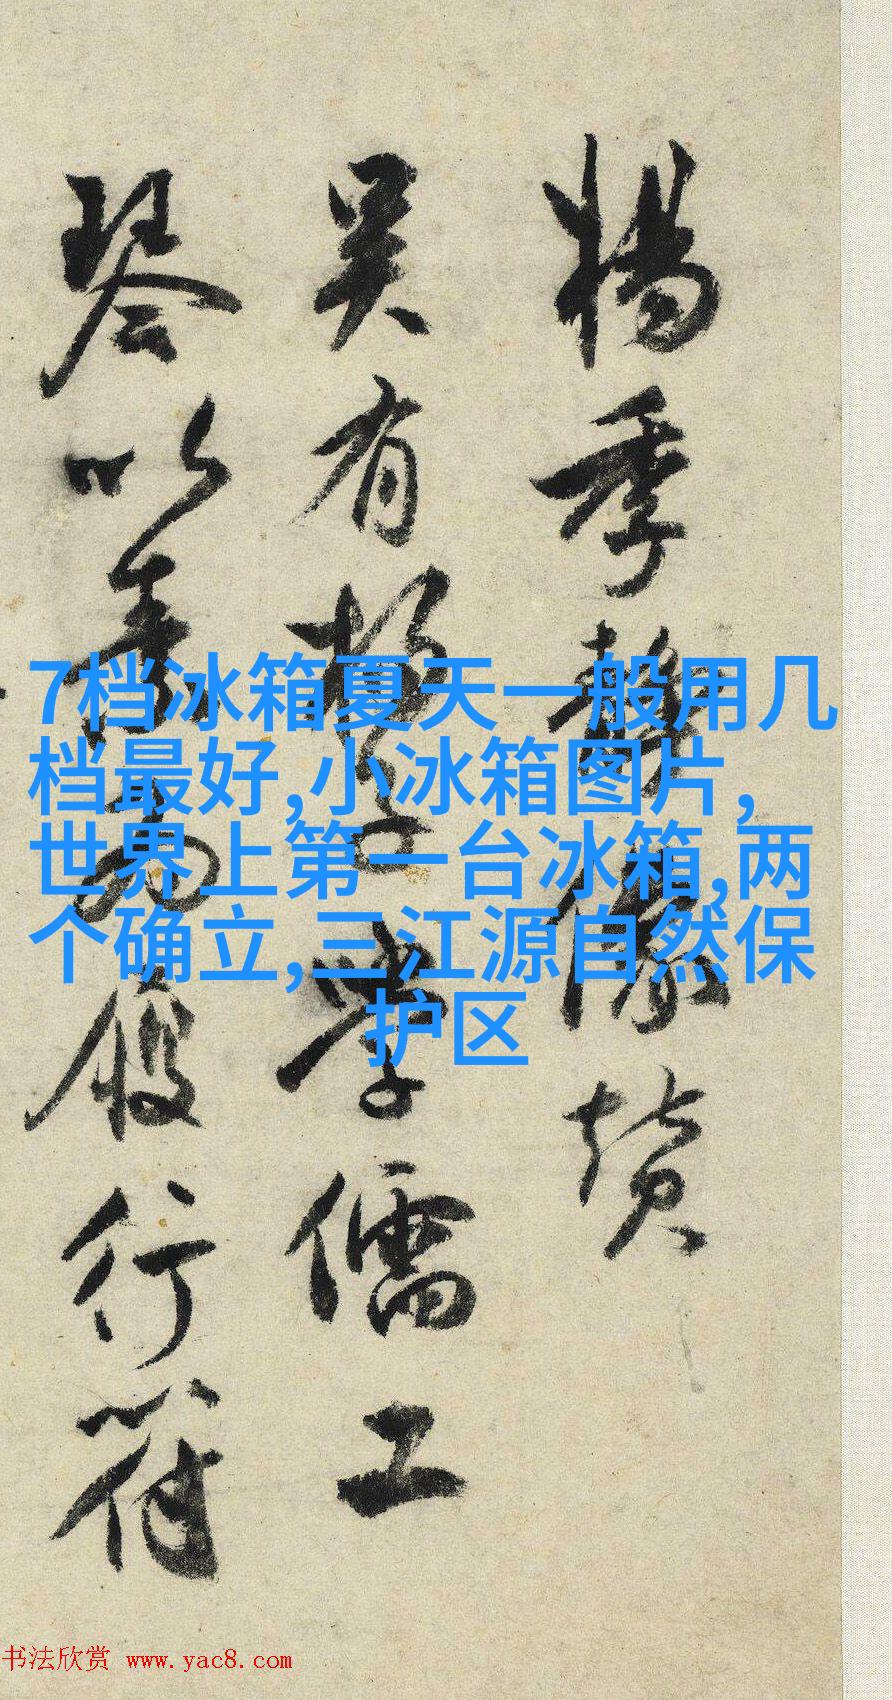 楊季靜像贊
吳有楊子學儒工
琴以素為履行符
7档冰箱夏天一般用几
档最好,小冰箱图片,
世界上第一台冰箱,两
个确立,三江源自然保
护区
书法欣赏 www.yac8.com